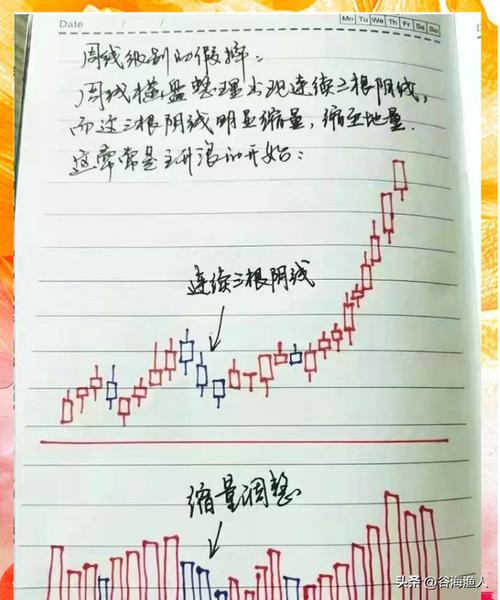 Date / /
Mo Tu We Th Fr Sa Su
周线级别的假摔：
周线横盘整理出现连续三根阴线，
而这三根阴线明显缩量，缩至地量.
这常常是主升浪的开始：
连续三根阴线
缩量调整
头条 @谷海渔人